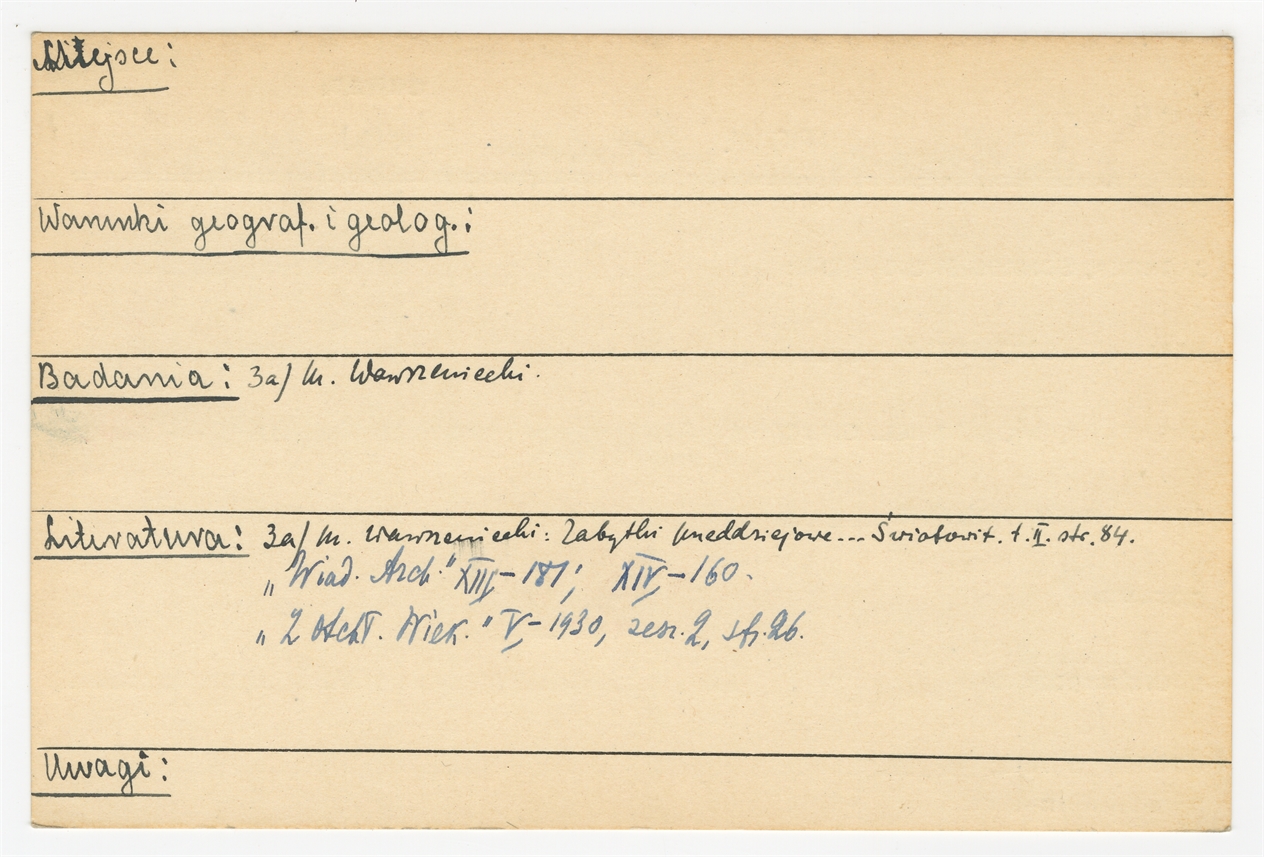 Miejsce:
Warunki geograf. i geolog.:
Badania: 3a/ M. Wawrzeniecki.
Literatura: 3a/ M. Wawrzeniecki: Zabytki przeddziejowe... Światowit. t. II. str. 84.
"Wiad. Arch." XIII – 181; XIV – 160.
"Z Otchł. Wiek." V – 1930, zesz. 2, str. 26.
Uwagi: